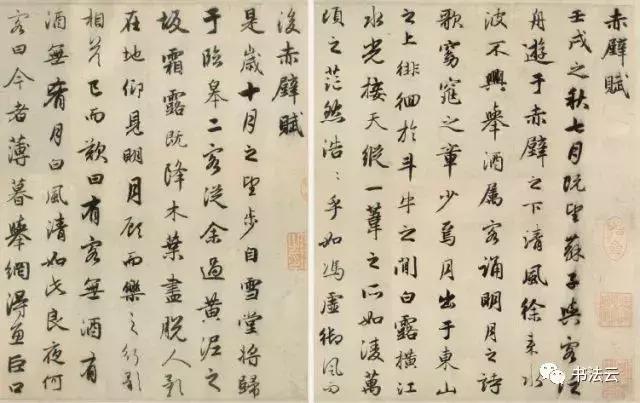 赤壁賦
壬戌之秋七月既望蘇子與客泛
舟遊于赤壁之下清風徐来水
波不興舉酒属客誦明月之詩
歌窈窕之章少焉月出于東山
之上徘徊於斗牛之間白露橫江
水光接天縱一葦之所如淩萬
頃之茫然浩〻乎如馮虛御風而
後赤壁賦
是歲十月之望步自雪堂將歸
于臨皋二客従余過黄泥之
坂霜露既降木葉盡脱人影
在地仰見明月顧而樂之行歌
相荅已而歎曰有客無酒有
酒無肴月白風清如此良夜何
客曰今者薄暮舉網得魚巨口
书法云